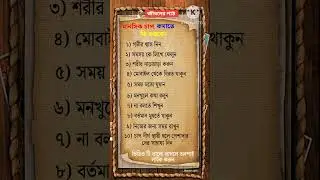 জীবনের পাঠ
মানসিক চাপ কমাতে
কি করবেন
১) গভীর শ্বাস নিন
২) সমস্যা কে লিখে ফেলুন
৩) শরীর নাড়াচাড়া করুন
৪) মোবাইল থেকে বিরত থাকুন
৫) সময় মতো ঘুমান
৬) মনখুলে কথা বলুন
৭) না বলতে শিখুন
৮) বর্তমান মুহূর্তে থাকুন
৯) নিজের জন্য সময় রাখুন
১০) চাপ দীর্ঘ স্থায়ী হলে পেশাদার
দের সাহায্য নিন
ভিডিও টি ভালো লাগলে অবশ্যই
করুন
৩) শরীর
৪) মোবাই
৫) সময়
৬) মনখু
৭) না ব
৮) বর্তমা
থাকুন